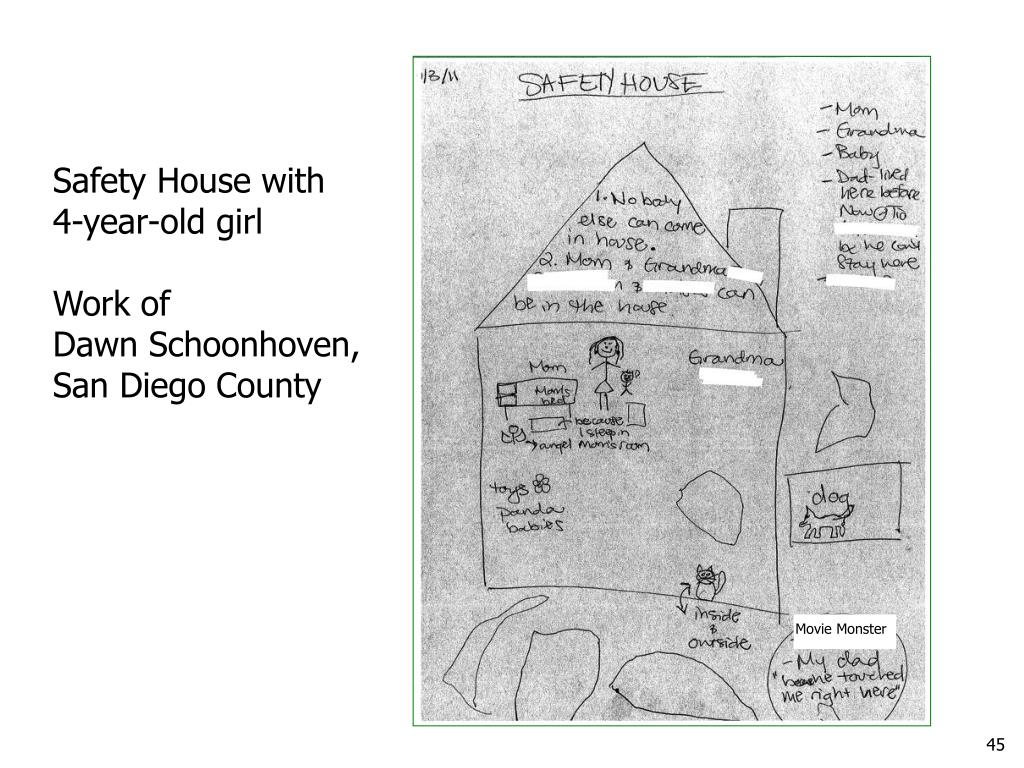 Safety House with
4-year-old girl
Work of
Dawn Schoonhoven,
San Diego County
1/3/11
SAFETY HOUSE
- Mom
- Grandma
- Baby
- Dad-lived
here before
Now @
be he can't
stay here
1. Nobody
else can come
in house.
2. Mom & Grandma
& can
be in the house.
Mom
Mom's
bed
because
I sleep in
mom's room
angel
Grandma
toys
panda
babies
dog
inside
&
outside
Movie Monster
- My dad
"he touched
me right here"
45